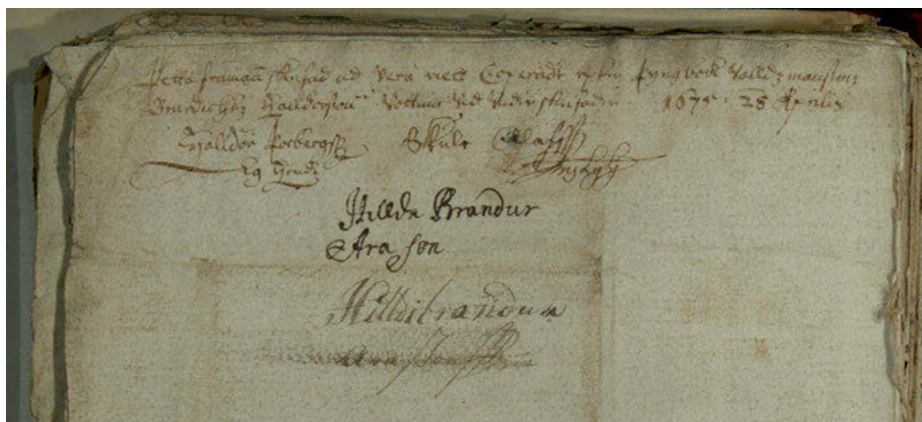 Þetta framan skrifad ad vera rett Coperadt epter þyngbook Valldzmansins
Benedichtz Halldorssonar Vottum Vid Underskrifader 1675 28 Aprilis
Halldór Þorbergss Skule Olafss
Eg hendi
Hillde Brandur
Ara son
Hilldibrandur
Ara